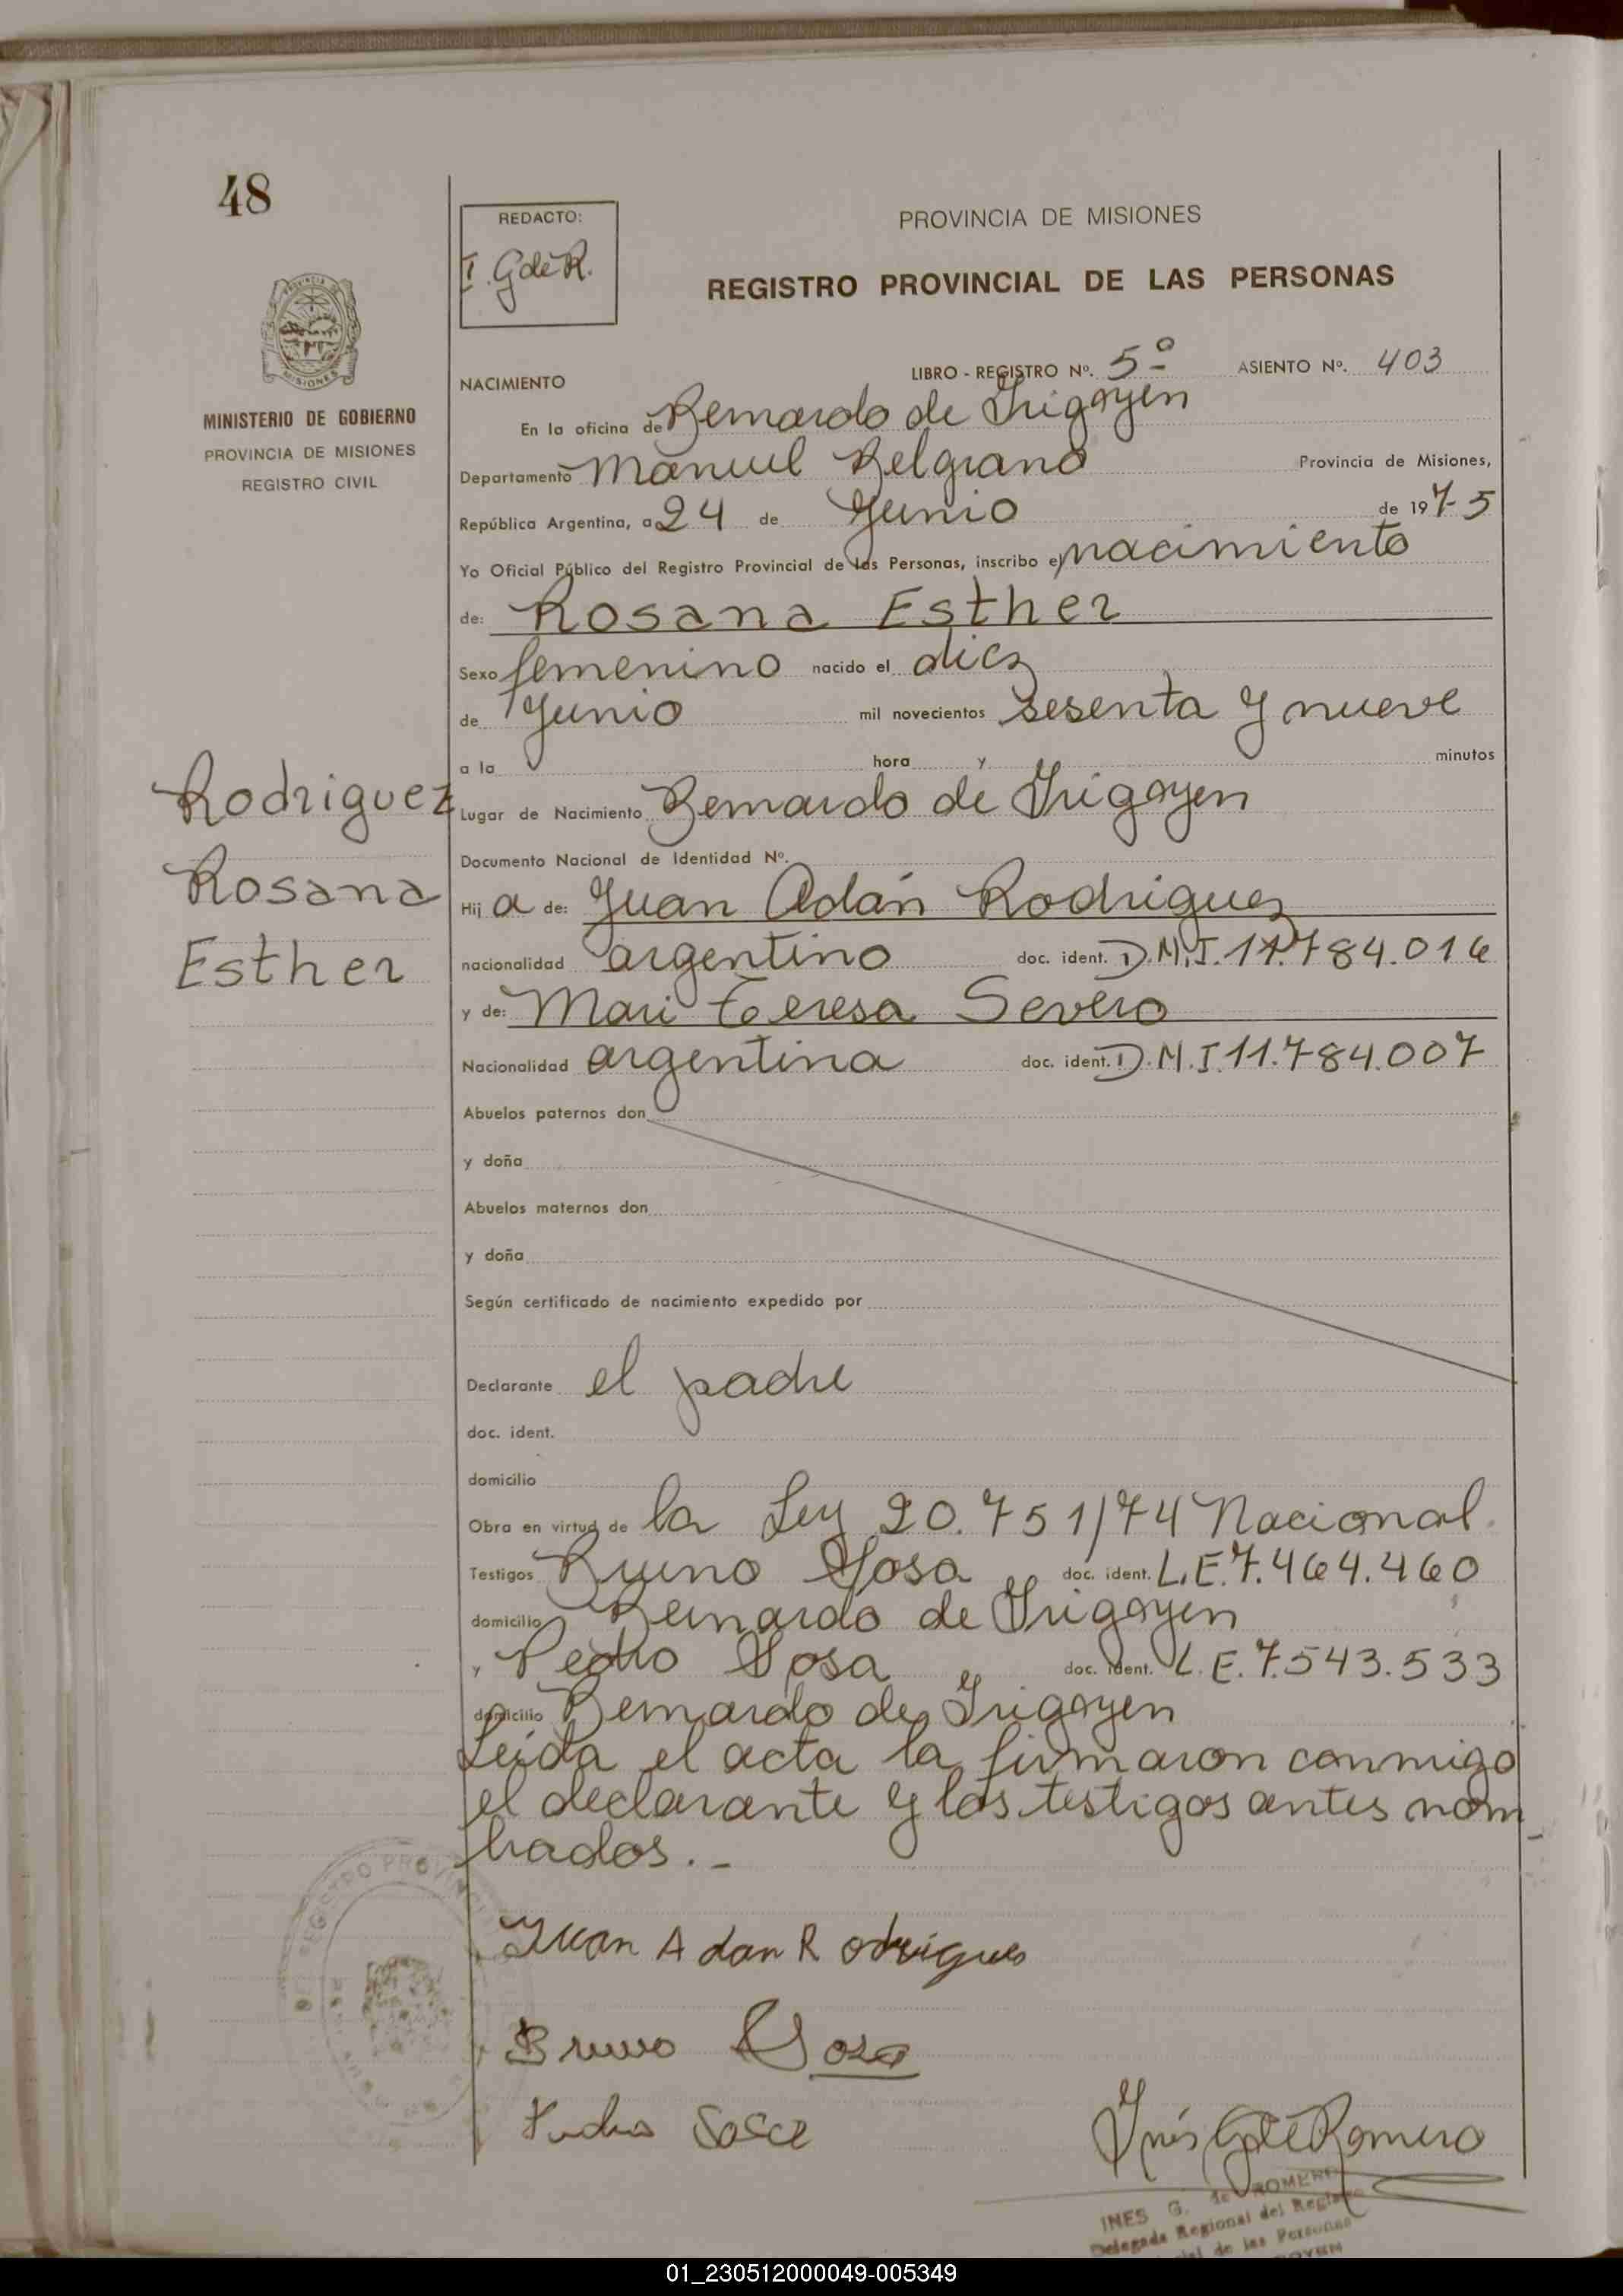 48
REDACTO:
I. G de R.
PROVINCIA DE MISIONES
REGISTRO PROVINCIAL DE LAS PERSONAS
MISIONES
MINISTERIO DE GOBIERNO
PROVINCIA DE MISIONES
REGISTRO CIVIL
LIBRO - REGISTRO Nº. 5º ASIENTO Nº. 403
NACIMIENTO
En la oficina de Bernardo de Irigoyen
Departamento Manuel Belgrano Provincia de Misiones,
República Argentina, a 24 de Junio de 1975
Yo Oficial Público del Registro Provincial de las Personas, inscribo el nacimiento
de: Rosana Esther
Sexo femenino nacido el diez
de Junio mil novecientos sesenta y nueve
a la hora y minutos
Rodriguez
Rosana
Esther
Lugar de Nacimiento Bernardo de Irigoyen
Documento Nacional de Identidad Nº.
Hij a de: Juan Adán Rodriguez
nacionalidad argentino doc. ident. D.N.I. 11.784.016
y de: Mari Teresa Severo
Nacionalidad argentina doc. ident. D.N.I. 11.784.007
Abuelos paternos don
y doña
Abuelos maternos don
y doña
Según certificado de nacimiento expedido por
Declarante el padre
doc. ident.
domicilio
Obra en virtud de la Ley 20.751/74 Nacional.
Testigos Bruno Sosa doc. ident. L.E. 7.464.460
domicilio Bernardo de Irigoyen
y Pedro Sosa doc. ident. L.E. 7.543.533
domicilio Bernardo de Irigoyen
Leída el acta la firmaron conmigo
el declarante y los testigos antes nom
brados.-
Juan Adan Rodrigues
Bruno Sosa
Pedro Sosa
Inés G de Romero
INES G. de ROMERO
Delegada Regional del Registro
de las Personas
01_230512000049-005349